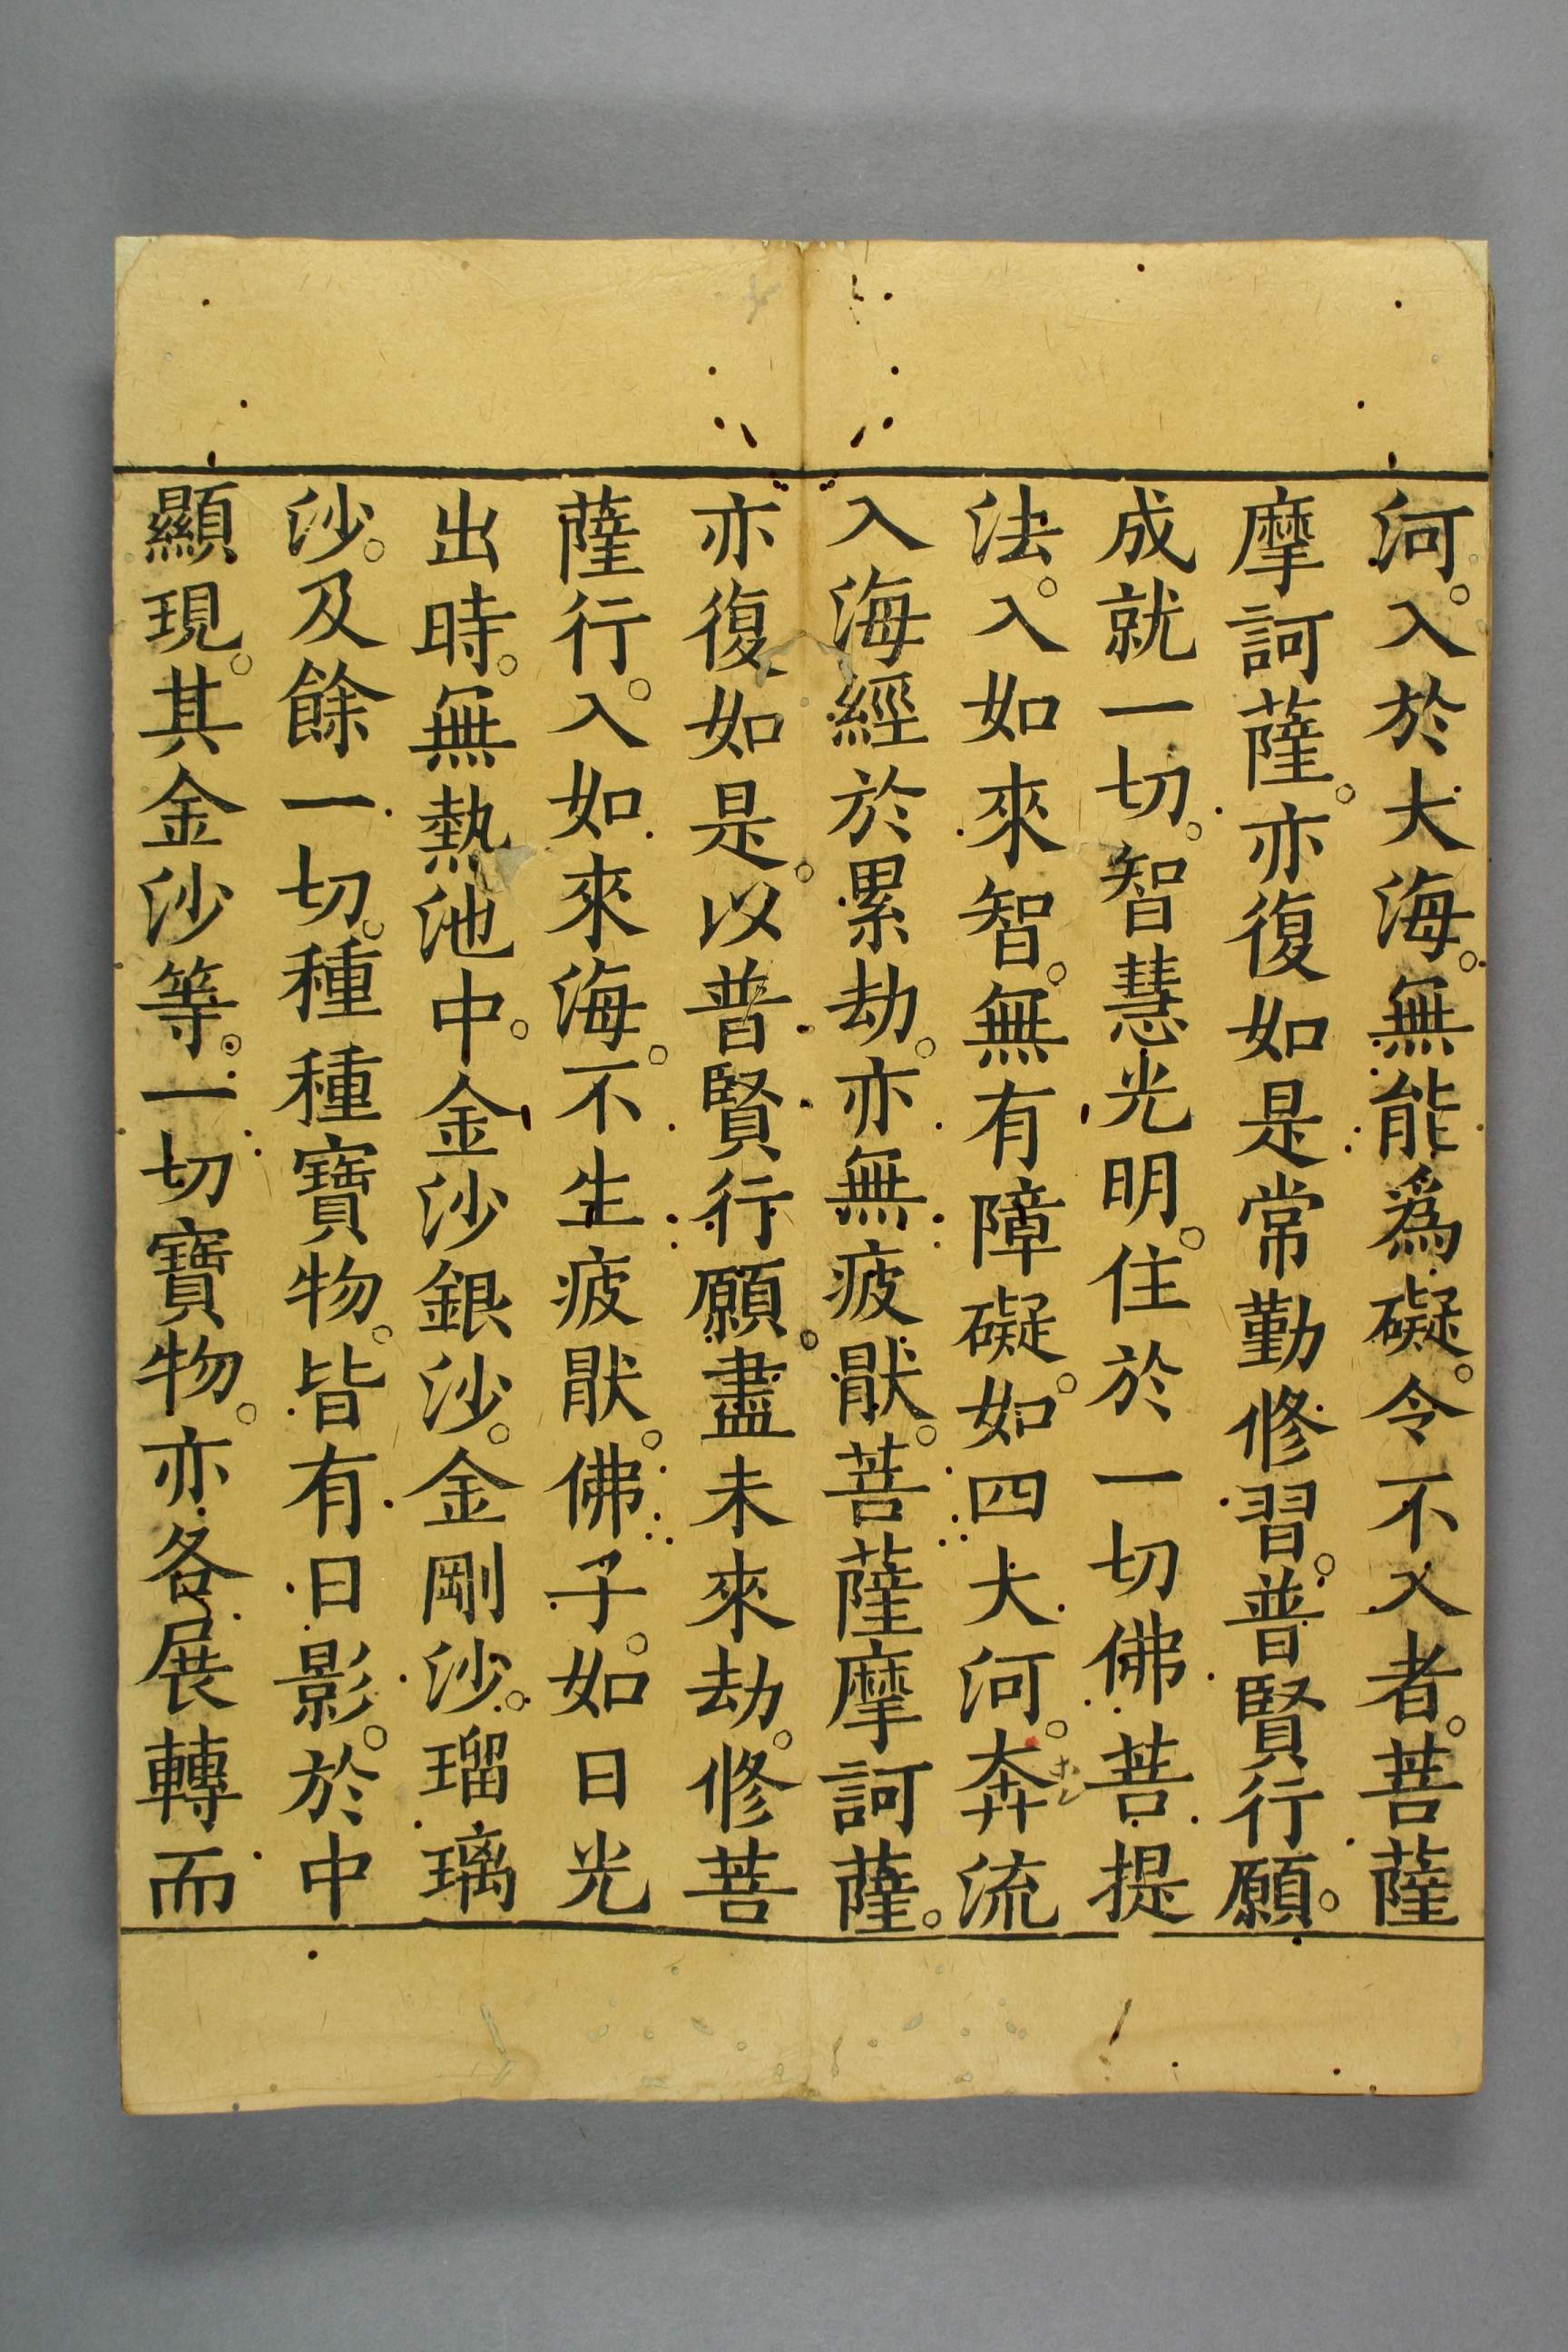 河。入於大海。無能爲礙。令不入者。菩薩
摩訶薩。亦復如是常勤修習。普賢行願。
成就一切。智慧光明。住於一切佛菩提
法。入如來智。無有障礙。如四大河。奔流
入海經於累劫。亦無疲猒。菩薩摩訶薩。
亦復如是。以普賢行願。盡未來劫。修菩
薩行。入如來海。不生疲猒。佛子。如日光
出時。無熱池中。金沙銀沙。金剛沙。瑠璃
沙。及餘一切。種種寶物。皆有日影。於中
顯現。其金沙等。一切寶物。亦各展轉而